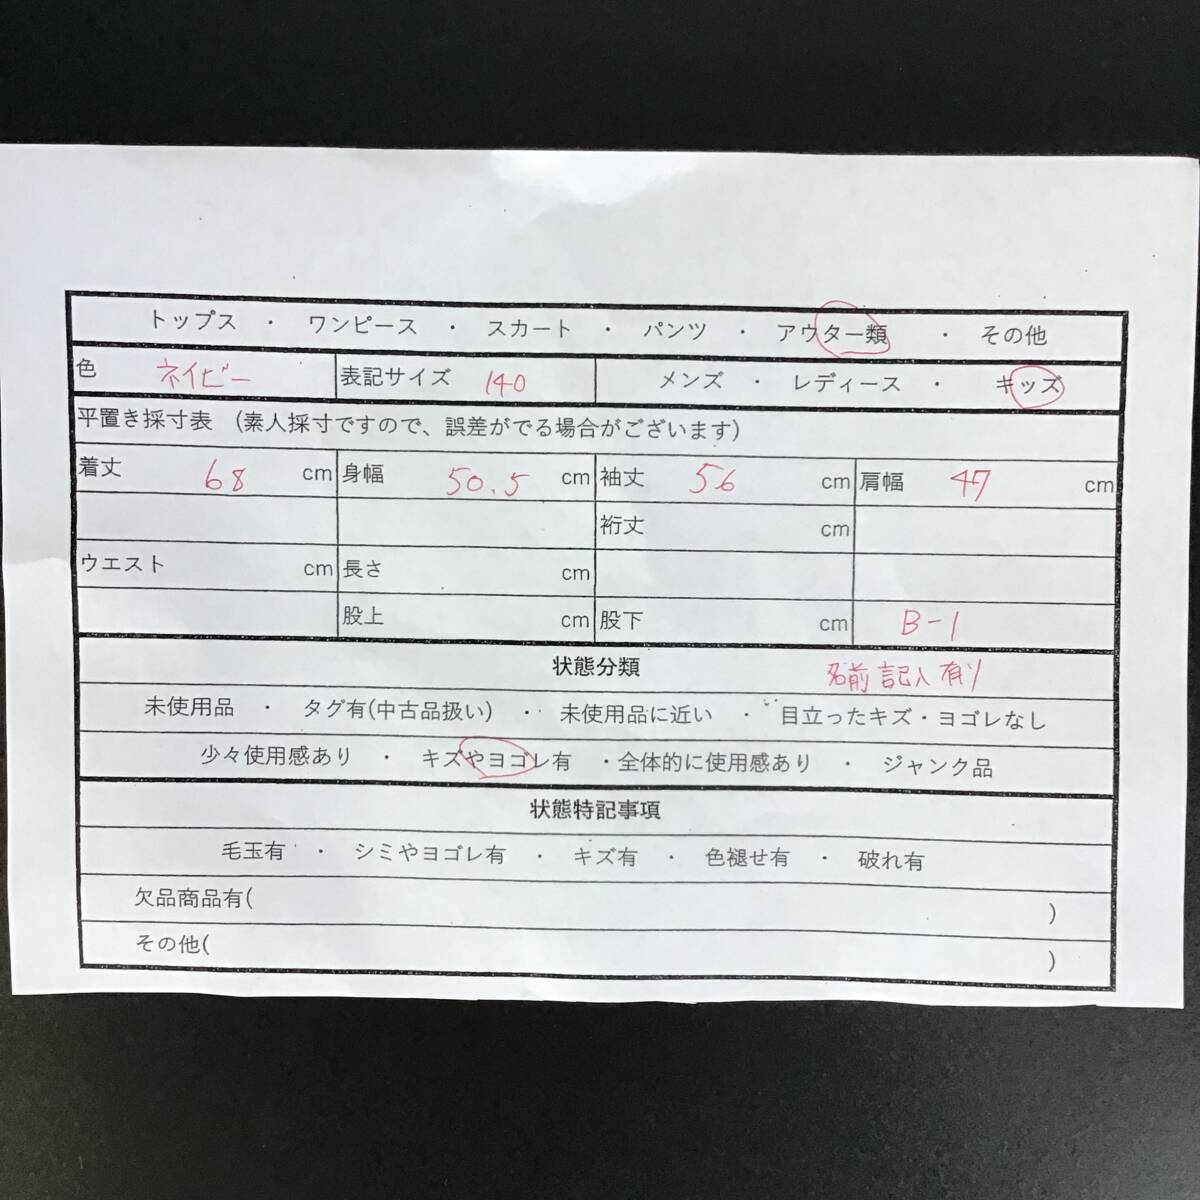 トップス ・ ワンピース ・ スカート ・ パンツ ・ アウター類 ・ その他
色 ネイビー 表記サイズ 140 メンズ ・ レディース ・ キッズ
平置き採寸表 (素人採寸ですので、誤差がでる場合がございます)
着丈 68 cm 身幅 50.5 cm 袖丈 56 cm 肩幅 47 cm
裄丈 cm
ウエスト cm 長さ cm
股上 cm 股下 cm B-1
状態分類 名前記入有り
未使用品 ・ タグ有(中古品扱い) ・ 未使用品に近い ・ 目立ったキズ・ヨゴレなし
少々使用感あり ・ キズやヨゴレ有 ・全体的に使用感あり ・ ジャンク品
状態特記事項
毛玉有 ・ シミやヨゴレ有 ・ キズ有 ・ 色褪せ有 ・ 破れ有
欠品商品有( )
その他( )